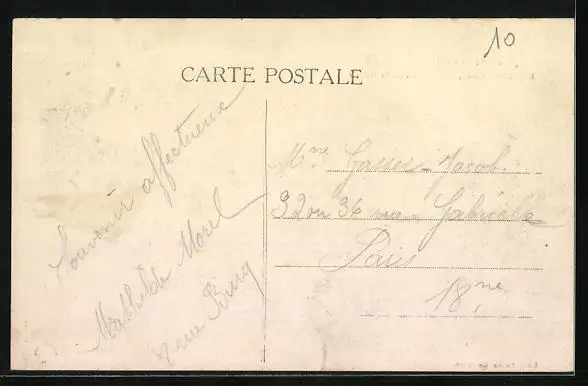 10
CARTE POSTALE
Souvenir affectueux
Mathilde Morel
rue Burq
Mme Gasses-Jacob
32 ou 34 rue Gabrielle
Paris
18me